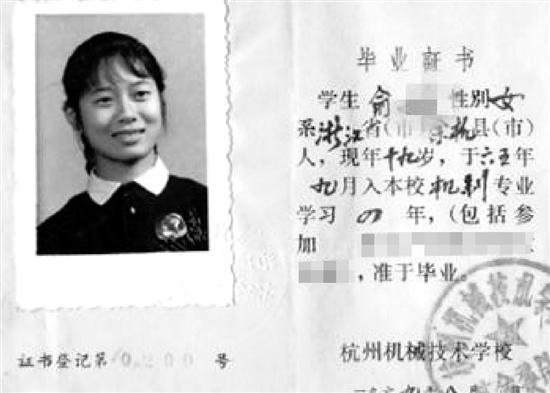 毕业证书
学生 俞 性别女
系浙江省(市)余杭县(市)
人，现年十九岁，于六五年
九月入本校机制专业
学习 四 年，(包括参
加
，准于毕业。
杭州机械技术学校
证书登记第0200号
杭州机械技术学校